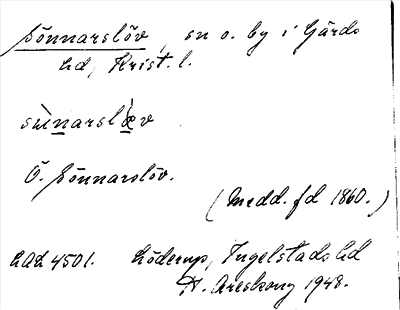 Sönnarslöv, sn o. by i Gärds
hd, Krist. l.
sönarslæv
Ö. Sönnarslöv.
(Medd. fd 1860.)
LAL 4501. Löderup, Ingelstads hd
H. Areskoug 1948.